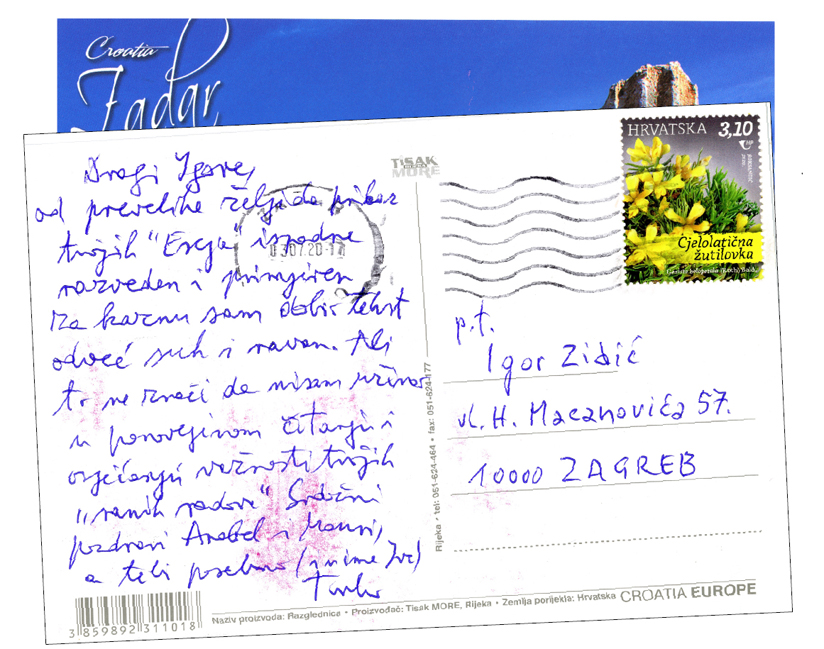 Croatia
Zadar
Dragi Igore,
od prevelike želje da prikaz
tvojih "Eseja" ispadne
razveden i primjeren
za kaznu sam dobio tekst
odveć suh i ravan. Ali
to ne znači da nisam uživao
u ponovljenom čitanju i
osjećanju važnosti tvojih
"ranih radova" Srdačni
pozdravi Anabel i Mauri,
a tebi posebno (i u ime Ive)
Tonko
TISAK
MORE
03.07.20-17
HRVATSKA 3,10
Cjelolatična
žutilovka
p.t.
Igor Zidić
ul. H. Macanovića 57.
10000 ZAGREB
Rijeka • tel: 051-624-464 • fax: 051-624-177
3 859892 311018
Naziv proizvoda: Razglednica • Proizvođač: Tisak MORE, Rijeka • Zemlja porijekla: Hrvatska CROATIA EUROPE